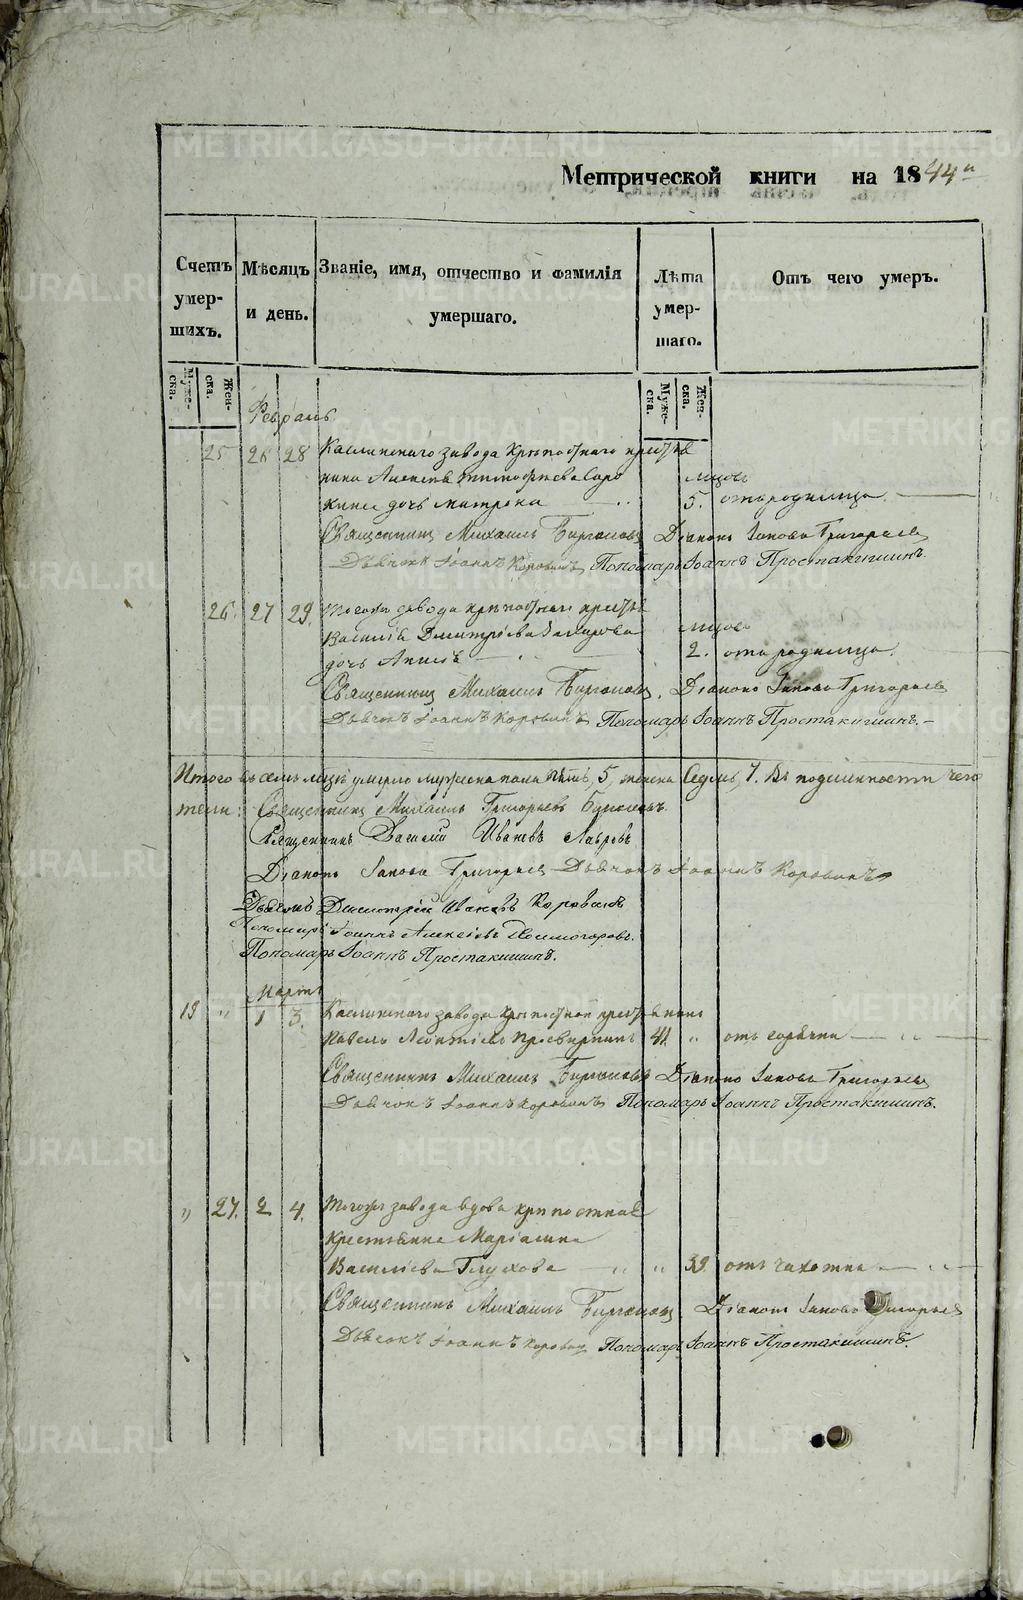 Метрической книги на 1844й
Счетъ умер-шихъ.
Мѣсяцъ и день.
Званіе, имя, отчество и фамилія умершаго.
Лѣта умер-шаго.
Отъ чего умеръ.
Муже-ска.
Жен-ска.
Муже-ска.
Жен-ска.
Февраль
25 26 28 Каслинскаго завода крѣпостнаго крестья
нина Алексѣя Тимофѣева
дочь Матрена мцовъ 5. отъ родимца
Священникъ Михаилъ Діаконъ Іаковъ Григорьевъ
Дьячокъ Іоаннъ Коровинъ Пономарь Іоаннъ Простакишинъ.
26. 27 29. Тогожъ завода крѣпостнаго крестья
Василія Дмитріева Захарова мцовъ
дочь 2. отъ родимца.
Священникъ Михаилъ Діаконъ Іаковъ Григорьевъ
Дьячокъ Іоаннъ Коровинъ Пономарь Іоаннъ Простакишинъ.
Итого въ семъ мцѣ умерло мужеска пола пять, 5, женска Седмь, 7. Въ подлинности чего
Священникъ Михаилъ Григорьевъ
Священникъ Василій Ивановъ Лавровъ
Діаконъ Іаковъ Григорьевъ Дьячокъ Іоаннъ Коровинъ
Дьячокъ Димитрій Ивановъ Коровинъ
Пономарь Іоаннъ Алексѣевъ
Пономарь Іоаннъ Простакишинъ.
Мартъ
19 " 1 3. Каслинскаго завода крѣпостной крестьянинъ
Павелъ Леонтіевъ 41. " отъ горячки
Священникъ Михаилъ Діаконъ Іаковъ Григорьевъ
Дьячокъ Іоаннъ Коровинъ Пономарь Іоаннъ Простакишинъ.
" 27. 2 4. Тогожъ завода вдова крѣпостная
крестьянка
Василіева Глухова " " 39. отъ чахотки
Священникъ Михаилъ Діаконъ Іаковъ Григорьевъ
Дьячокъ Іоаннъ Коровинъ Пономарь Іоаннъ Простакишинъ.
METRIKI.GASO-URAL.RU